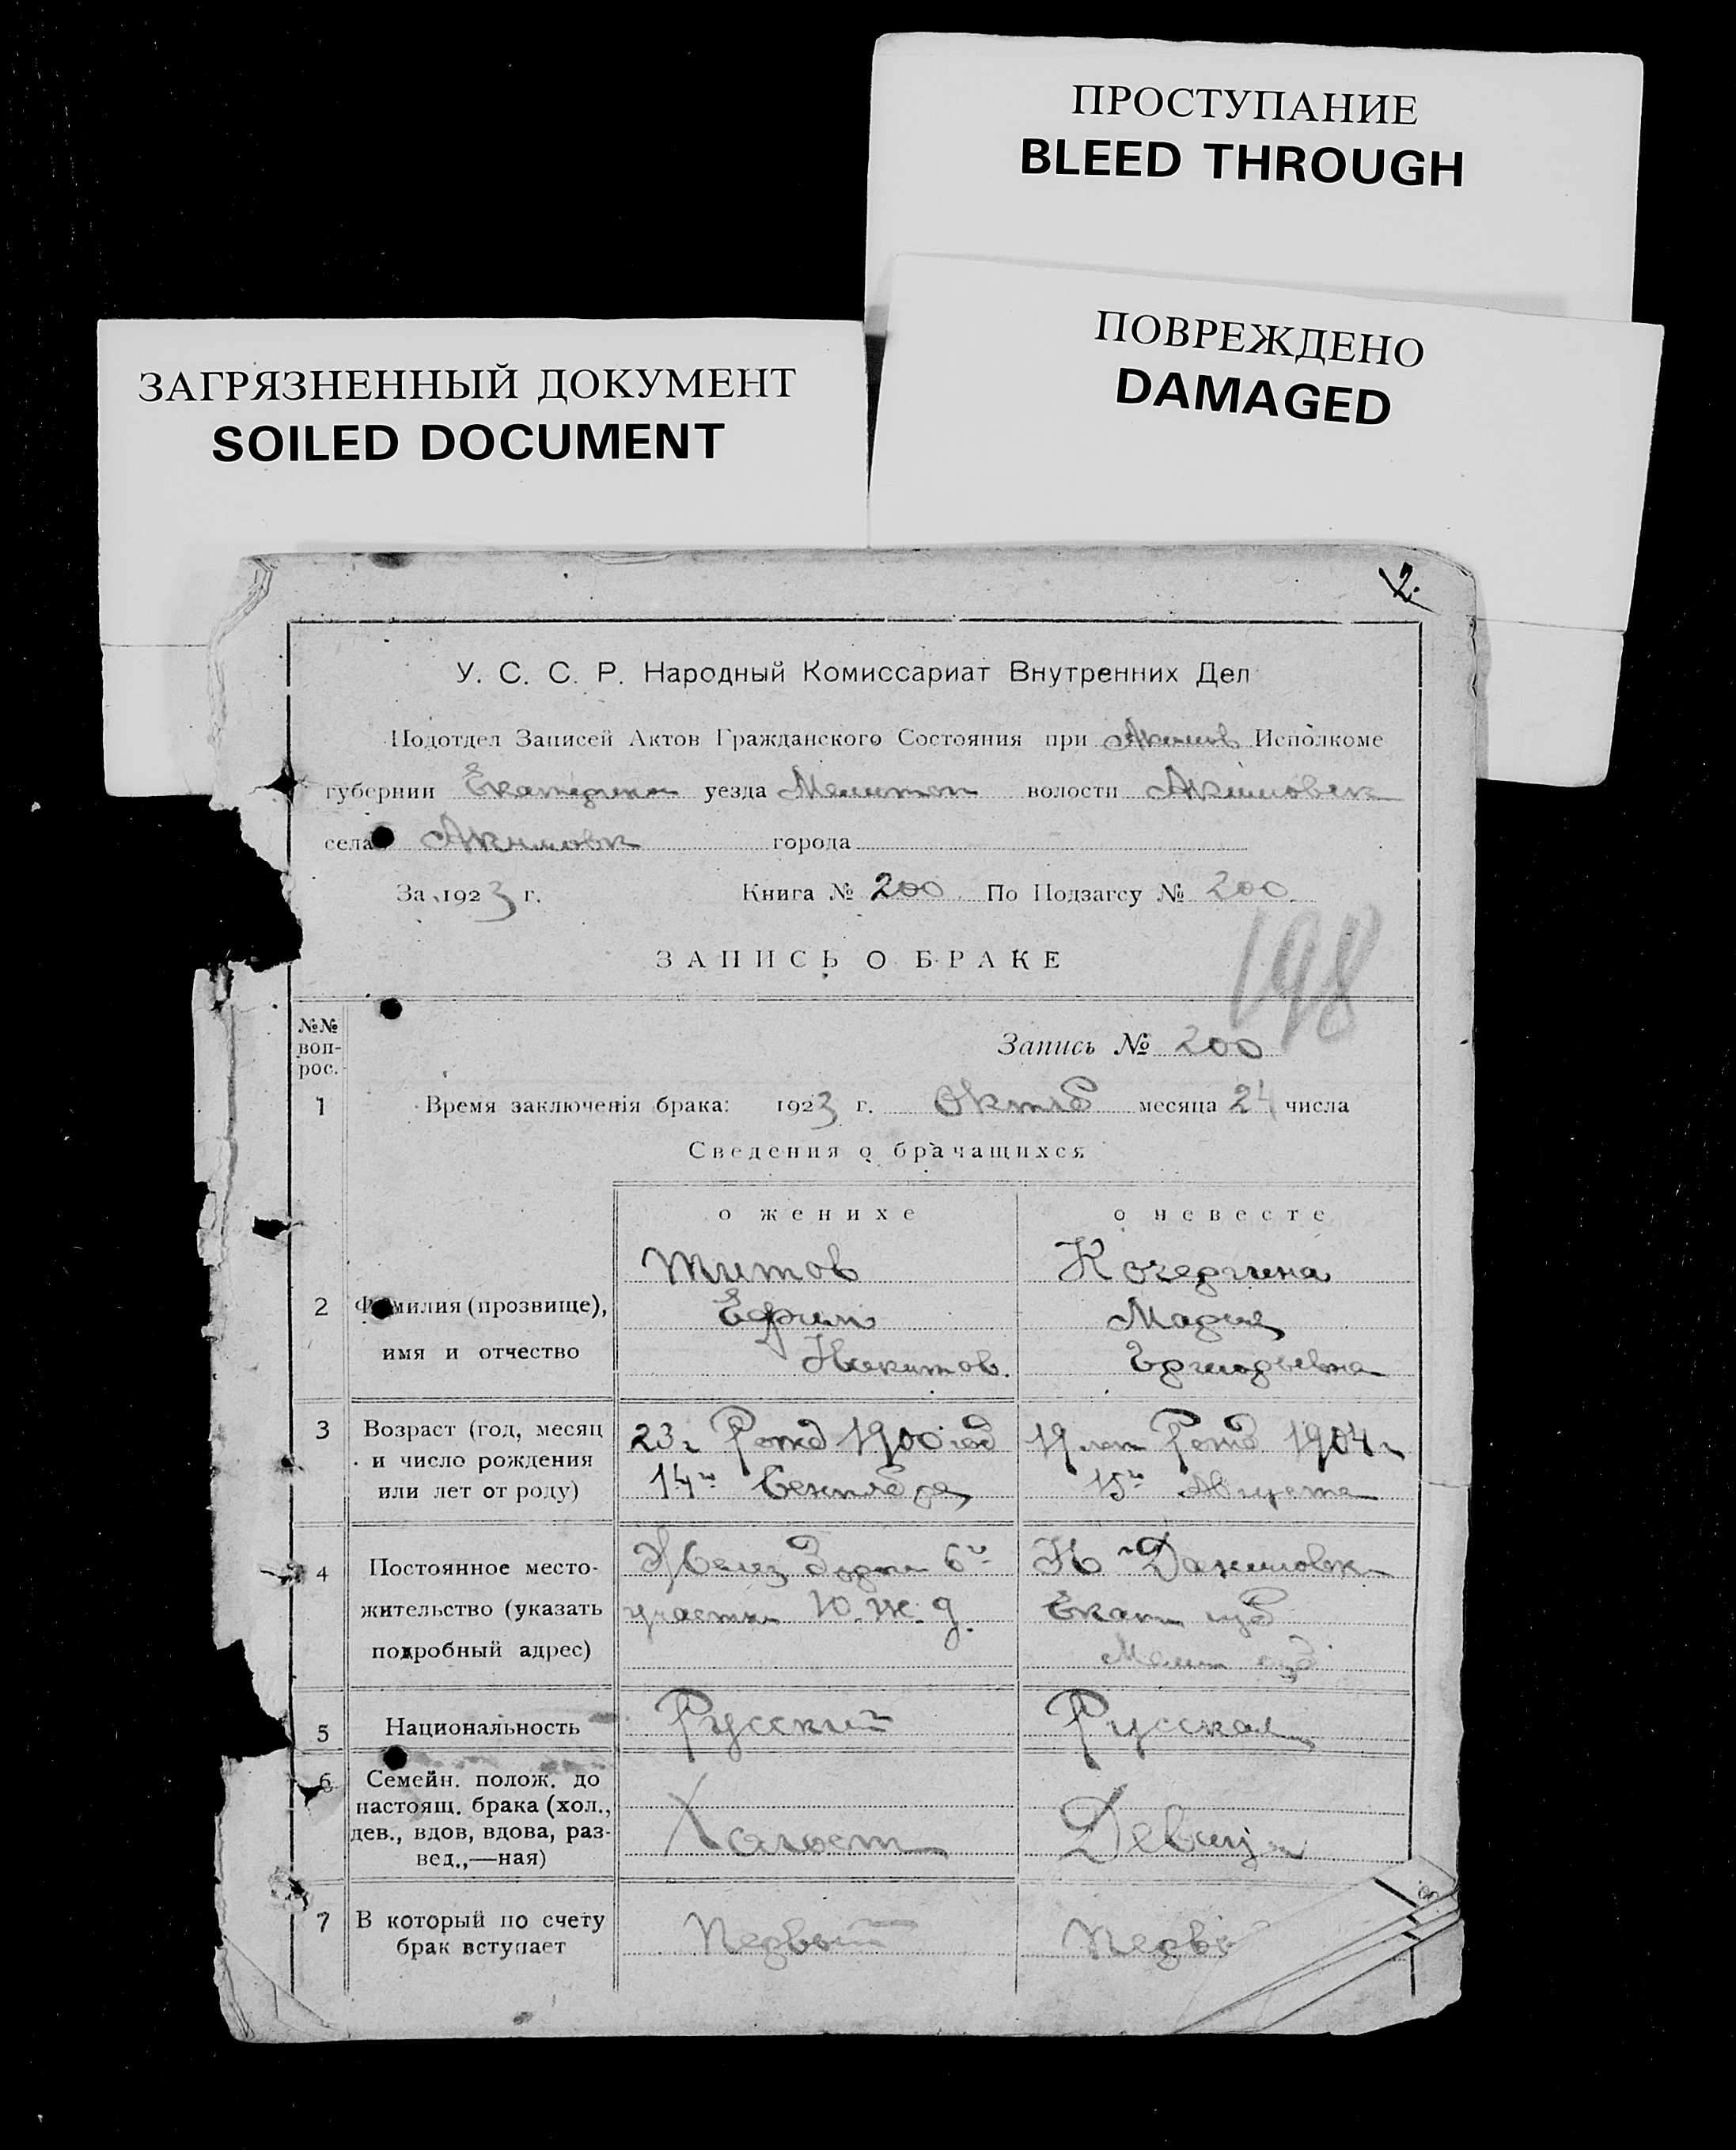 ПРОСТУПАНИЕ
BLEED THROUGH
ПОВРЕЖДЕНО
DAMAGED
ЗАГРЯЗНЕННЫЙ ДОКУМЕНТ
SOILED DOCUMENT
2.
У. С. С. Р. Народный Комиссариат Внутренних Дел
Подотдел Записей Актов Гражданского Состояния при Акимов Исполкоме
губернии Екатерин уезда Мелитоп волости Акимовск
села Акимовк города
За 1923 г. Книга № 200 По Подзагсу № 200.
198
ЗАПИСЬ О БРАКЕ
№№ воп-рос.
Запись № 200
1 Время заключенія брака: 1923 г. Октяб месяца 24 числа
Сведения о брачащихся
о женихе о невесте
Титов Кочергина
2 Фамилия (прозвище), Ефим Мария
имя и отчество Никитов. Григорьевна
3 Возраст (год, месяц 23 г Рожд 1900 год 19 лет Рожд 1904 г
и число рождения
или лет от роду) 14го Сентября 15го Августа
4 Постоянное место- Желез Дорга 6й Н Даниловк
жительство (указать участк Ю. ж. д. Екат губ
подробный адрес) Мелит уезд
5 Национальность Русский Русская
6 Семейн. полож. до
настоящ. брака (хол.,
дев., вдов, вдова, раз- Холост Девица
вед.,—ная)
7 В который по счету Первый Перв
брак вступает